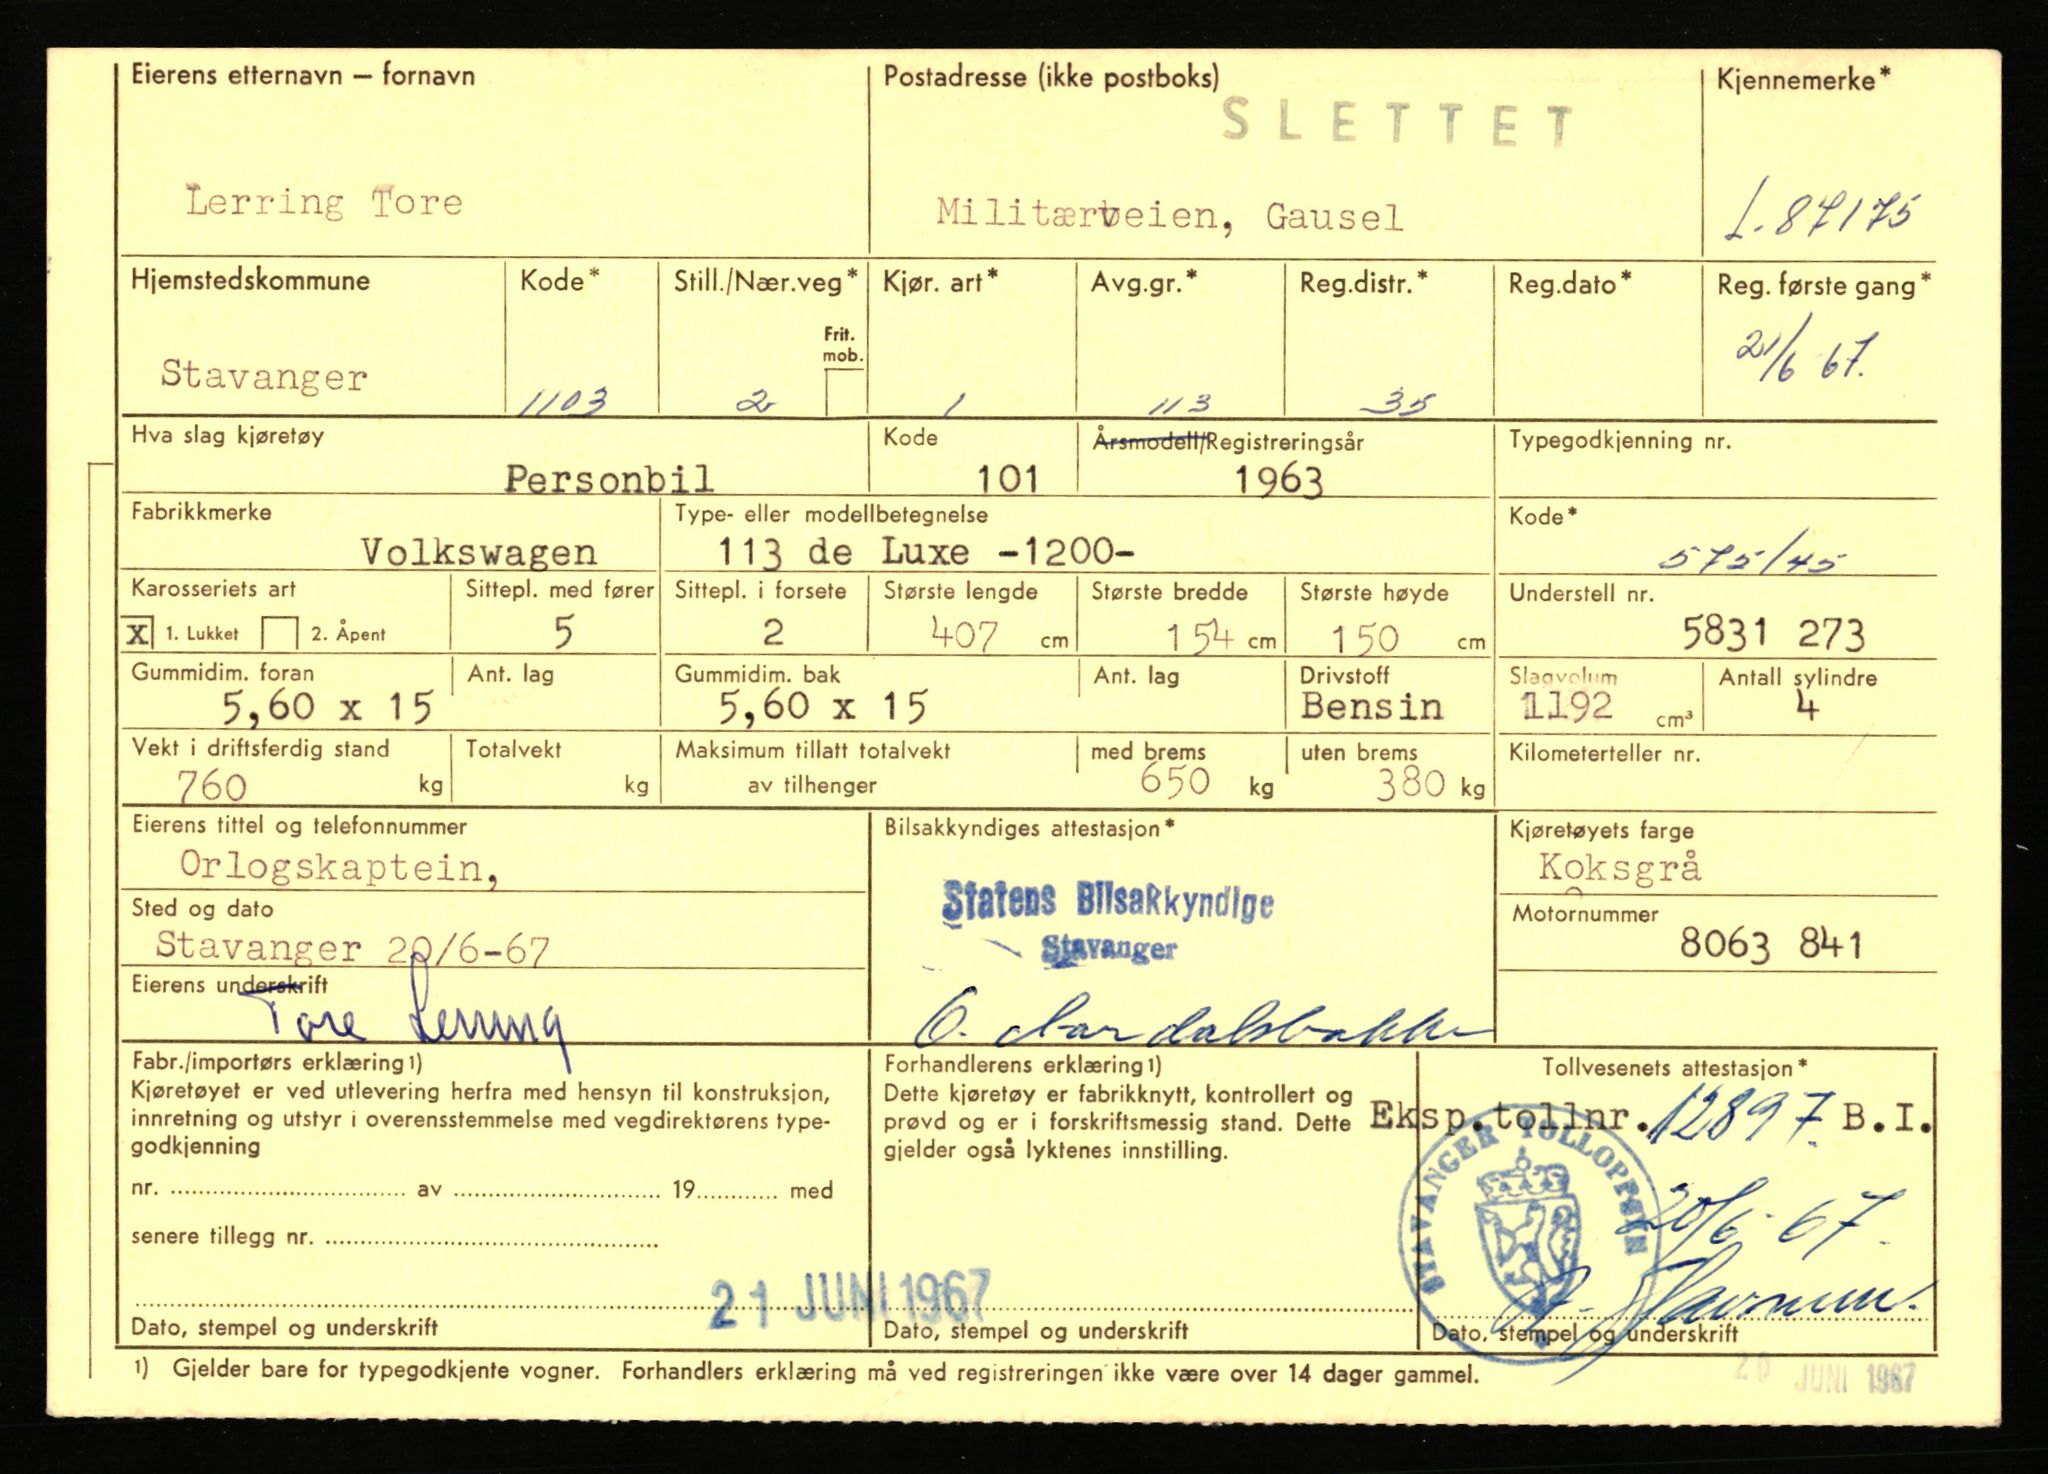 Eierens etternavn — fornavn
Postadresse (ikke postboks)
Kjennemerke*
SLETTET
Lerring Tore
Militærveien, Gausel
L-87175
Hjemstedskommune
Kode*
Still./Nær.veg*
Kjør. art*
Avg.gr.*
Reg.distr.*
Reg.dato*
Reg. første gang*
Frit. mob.
Stavanger
1103
2
1
113
35
21/6 67.
Hva slag kjøretøy
Kode
Årsmodell/Registreringsår
Typegodkjenning nr.
Personbil
101
1963
Fabrikkmerke
Type- eller modellbetegnelse
Kode*
Volkswagen
113 de Luxe -1200-
575/45
Karosseriets art
Sittepl. med fører
Sittepl. i forsete
Største lengde
Største bredde
Største høyde
Understell nr.
X 1. Lukket 2. Åpent
5
2
407 cm
154 cm
150 cm
5831 273
Gummidim. foran
Ant. lag
Gummidim. bak
Ant. lag
Drivstoff
Slagvolum
Antall sylindre
5,60 x 15
5,60 x 15
Bensin
1192 cm³
4
Vekt i driftsferdig stand
Totalvekt
Maksimum tillatt totalvekt
med brems
uten brems
Kilometerteller nr.
760 kg
kg
av tilhenger
650 kg
380 kg
Eierens tittel og telefonnummer
Bilsakkyndiges attestasjon*
Kjøretøyets farge
Orlogskaptein,
Koksgrå
Statens Bilsakkyndige
Stavanger
Sted og dato
Motornummer
Stavanger 20/6-67
8063 841
Eierens underskrift
Tore Lerring
Fabr./importørs erklæring 1)
Kjøretøyet er ved utlevering herfra med hensyn til konstruksjon,
innretning og utstyr i overensstemmelse med vegdirektørens type-
godkjenning
nr. av 19 med
senere tillegg nr.
Dato, stempel og underskrift
Forhandlerens erklæring 1)
Dette kjøretøy er fabrikknytt, kontrollert og
prøvd og er i forskriftsmessig stand. Dette
gjelder også lyktenes innstilling.
21 JUNI 1967
Dato, stempel og underskrift
Tollvesenets attestasjon*
Eksp.tollnr. 12897. B.I.
STAVANGER TOLLOPPSYN
20/6-67.
Dato, stempel og underskrift
1) Gjelder bare for typegodkjente vogner. Forhandlers erklæring må ved registreringen ikke være over 14 dager gammel.
20 JUNI 1967